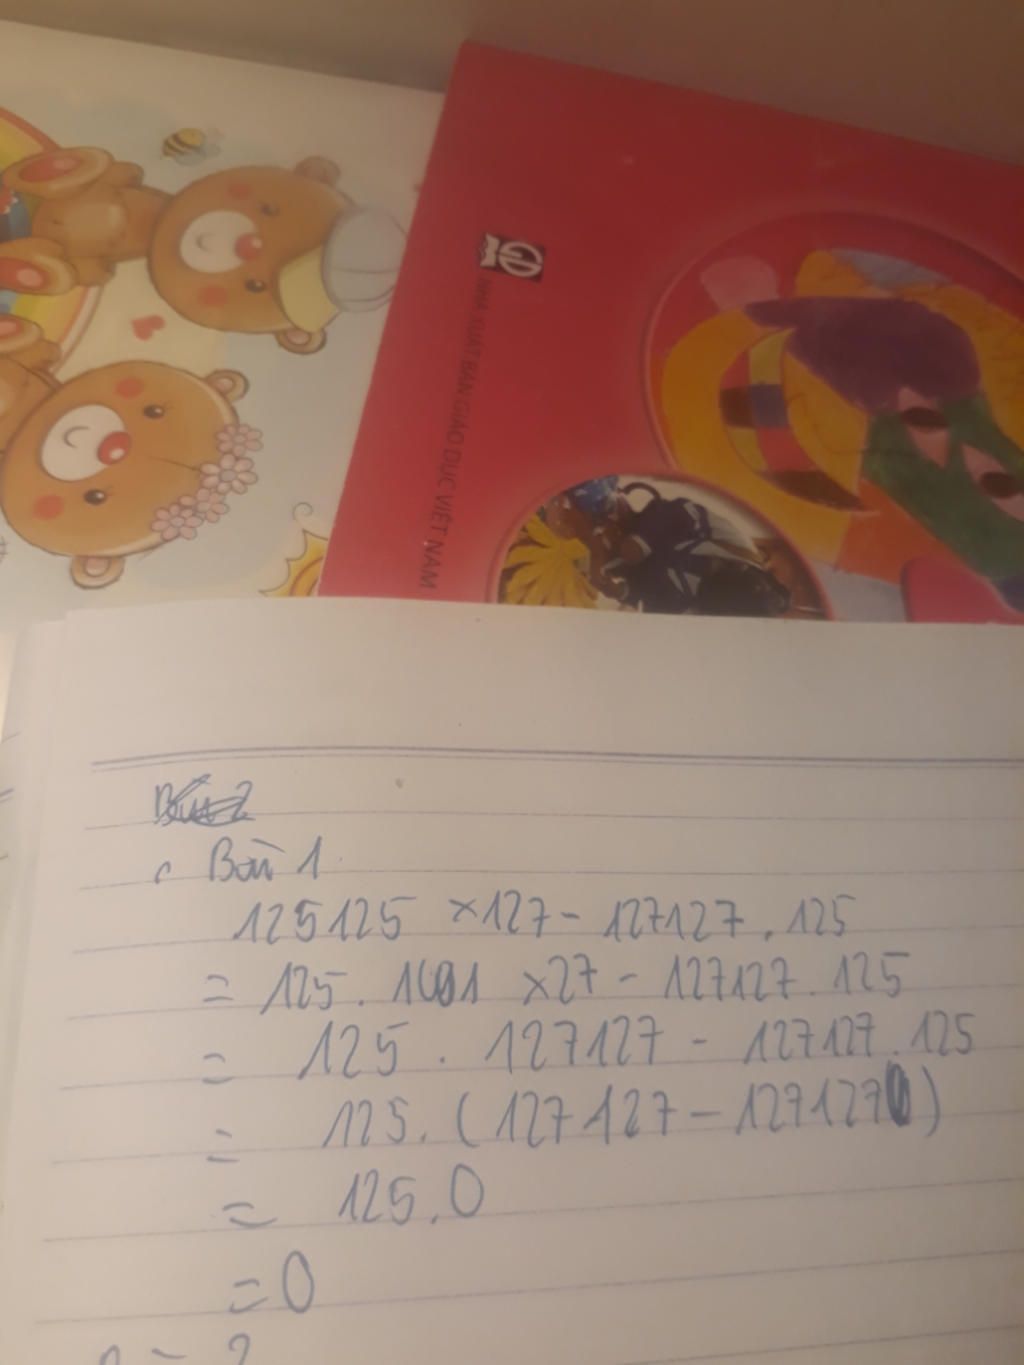 GD
NHÀ XUẤT BẢN GIÁO DỤC VIỆT NAM
Bài 2
Bài 1
125125 × 127 - 127127 . 125
= 125 . 1001 × 27 - 127127 . 125
= 125 . 127127 - 127127 . 125
= 125 . ( 127127 - 127127 )
= 125 . 0
= 0